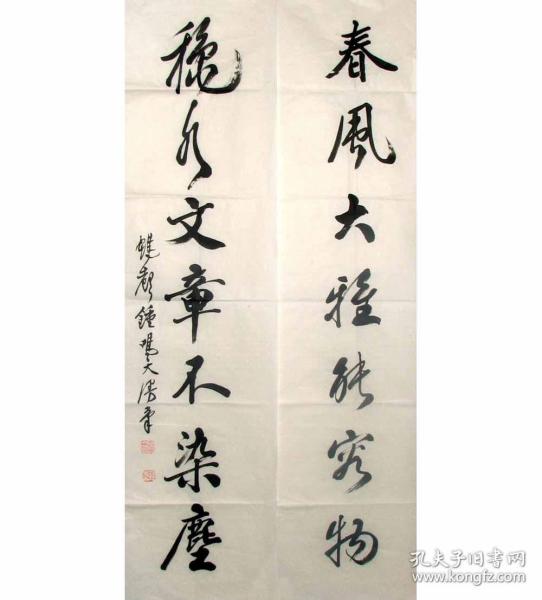 春風大雅能容物
穐水文章不染塵
孔夫子旧书网
www.kongfz.com